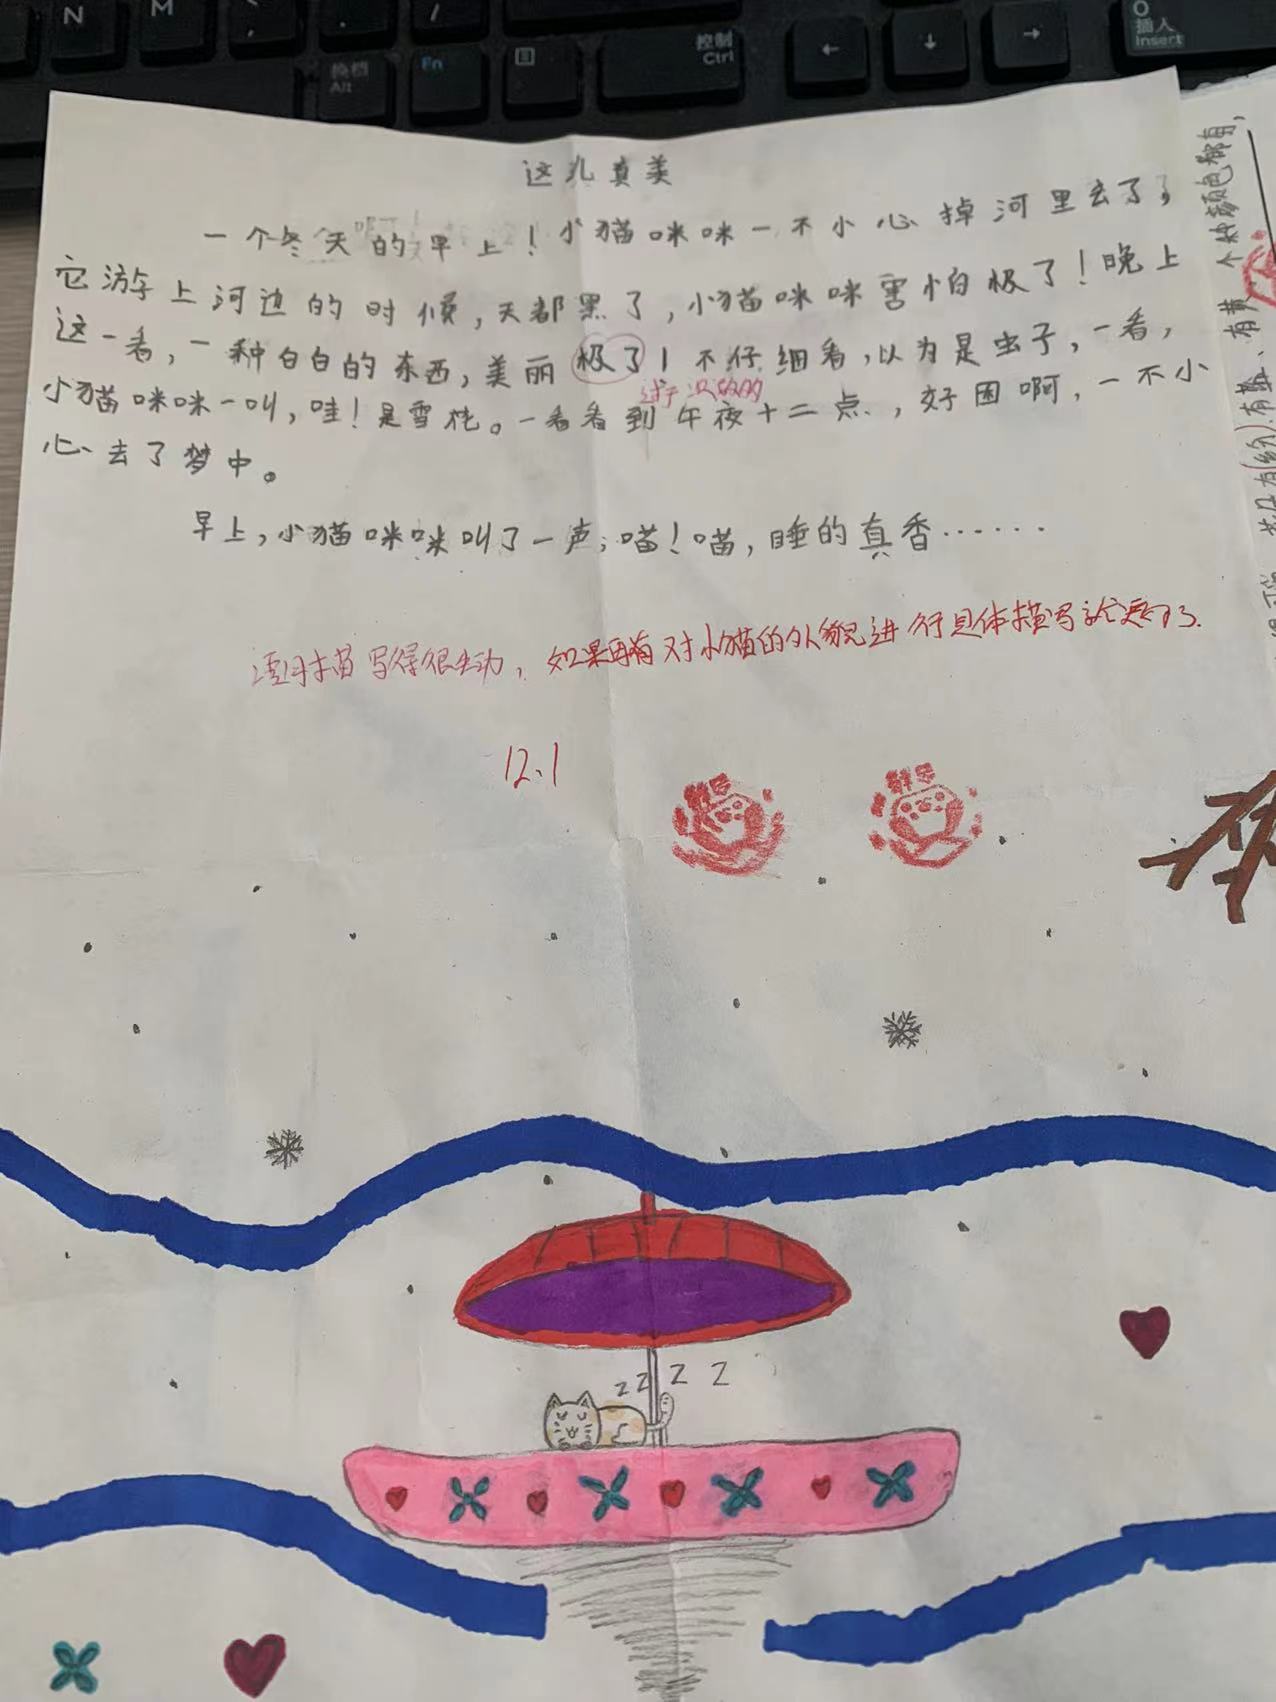 N
M
换档
Alt
Fn
控制
Ctrl
←
↓
→
0
插入
Insert
这儿真美
一个冬天的早上！小猫咪咪一不小心掉河里去了，
它游上河边的时候，天都黑了，小猫咪咪害怕极了！晚上
这一看，一种白白的东西，美丽极了！不仔细看，以为是虫子，一看，
小猫咪咪一叫，哇！是雪花。一看看到午夜十二点，好困啊，一不小
心去了梦中。
早上，小猫咪咪叫了一声；喵！喵，睡的真香……
写得很生动，如果再有对小猫的外貌进行具体描写就更好了.
12.1
z z z z
个种颜色都有，
有黄、
有蓝、